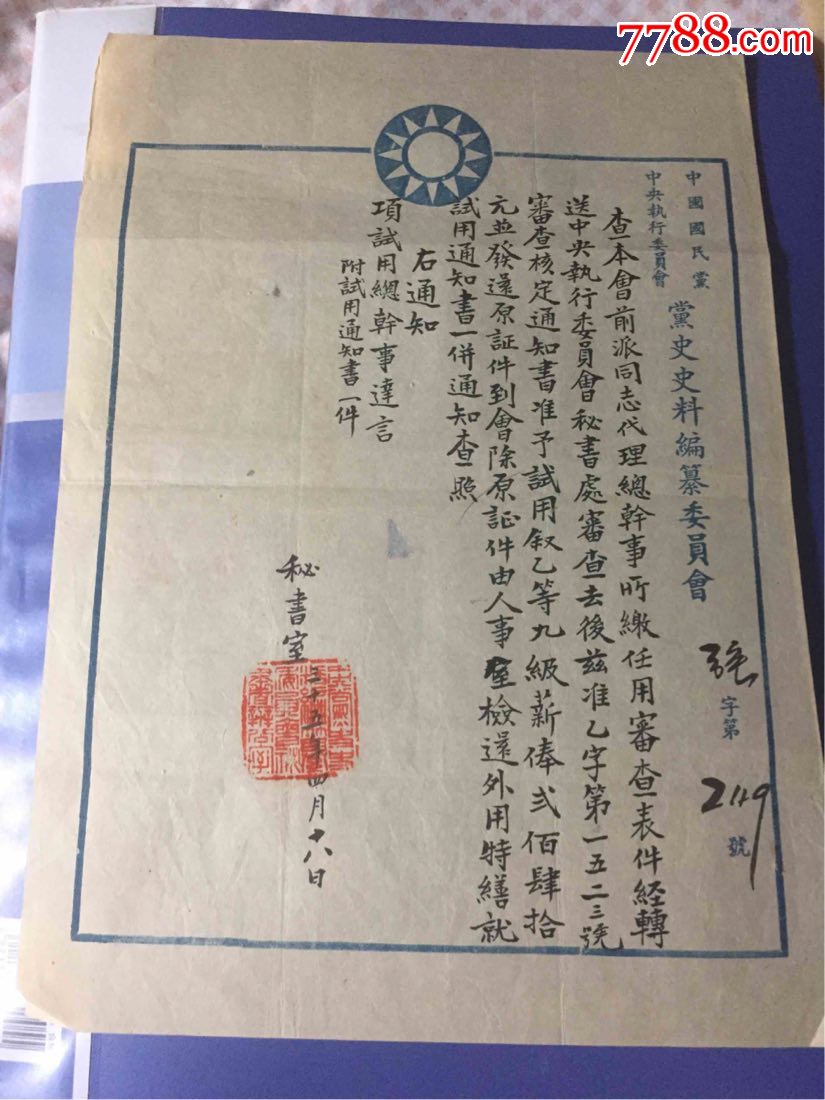 7788.com
中國國民黨
中央執行委員會
黨史史料編纂委員會
字第 2119 號
查本會前派同志代理總幹事所繳任用審查表件経轉
送中央執行委員會秘書處審查去後茲准乙字第一五二三號
審查核定通知書准予試用叙乙等九級薪俸弍佰肆拾
元並發還原証件到會除原証件由人事室檢還外用特繕就
試用通知書一併通知查照
右通知
項試用總幹事達言
附試用通知書一件
秘書室
三十五年四月十八日